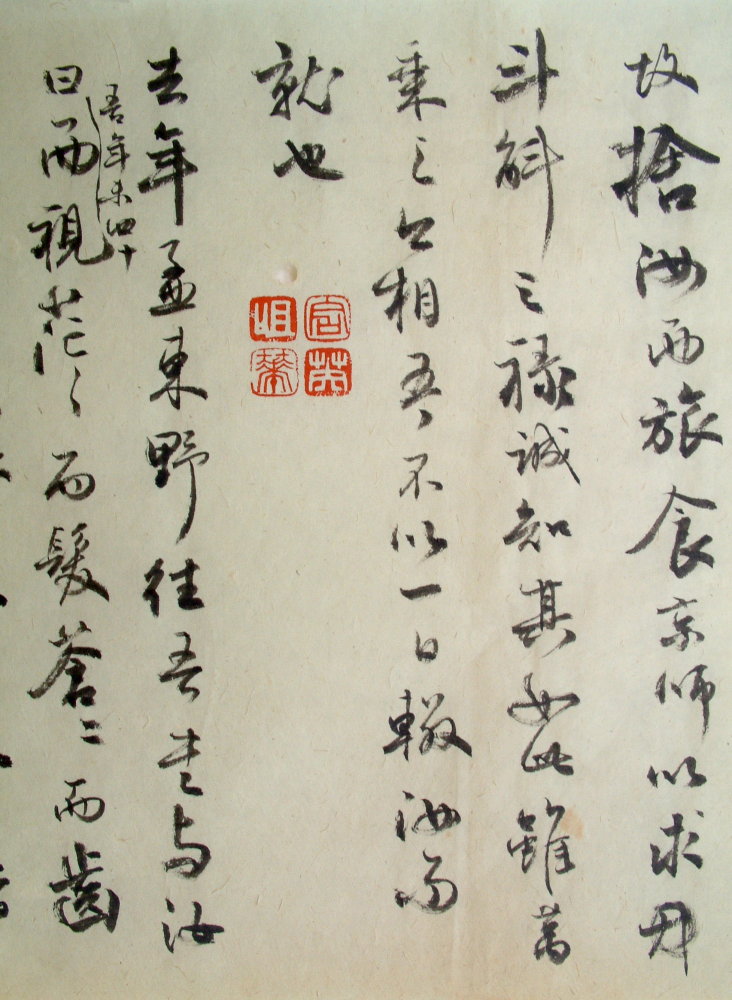 故捨汝而旅食京師以求升
斗斛之祿誠知其如此雖萬
乘之公相吾不以一日輟汝而
就也
含英咀華
去年孟東野往吾書与汝
吾年未四十
曰而視茫々而髮蒼〻而齒